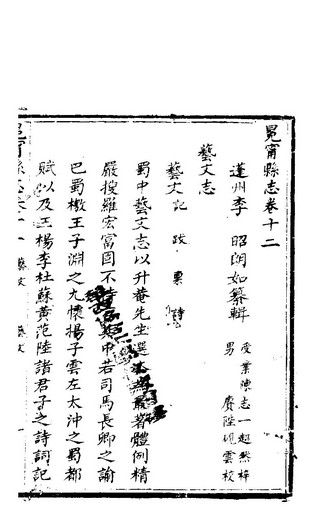 冕甯縣志卷十二
蓬州李 昭朗如纂輯 受業陳志一超然梓
男 賡陞硯雲校
藝文志
藝文 記 跋 票 詩
蜀中藝文志以升菴先生選本為最著體例精
嚴搜羅宏富固不 其中若司馬長卿之諭
巴蜀檄王子淵之九懷楊子雲左太沖之蜀都
賦以及王楊李杜蘇黃范陸諸君子之詩詞記
冕甯縣志卷十二 藝文